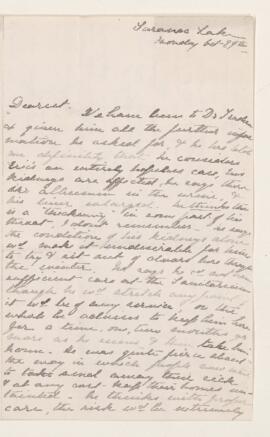 Saranac Lake
Monday Oct 29th
Dearest. We have been to Dr Trudeau
& given him all the further infor
mation he asked for, & he has told
me definitely that he considers
Eric's an entirely hopeless case, his
kidneys are affected, he says there
is albumen in the urine, &
his liver enlarged. He thinks there
is a thickening in some part of his
throat I don't remember. He says
the condition of his kidneys alone
wd. make it inadvisable for him
to try & sit out of doors here through
the winter. He says he cd. not have
sufficient care at the Sanitarium
though he wd. stretch any point if
it wd. be of any service, on the
whole he advises to keep him here
for a time, one, two months or
more as he seems & then take him
home. He was quite fierce about
the way in which people were
to take send away their sick
& at any cost keep their homes un
He thinks with proper
care, the risk wd. be extremely